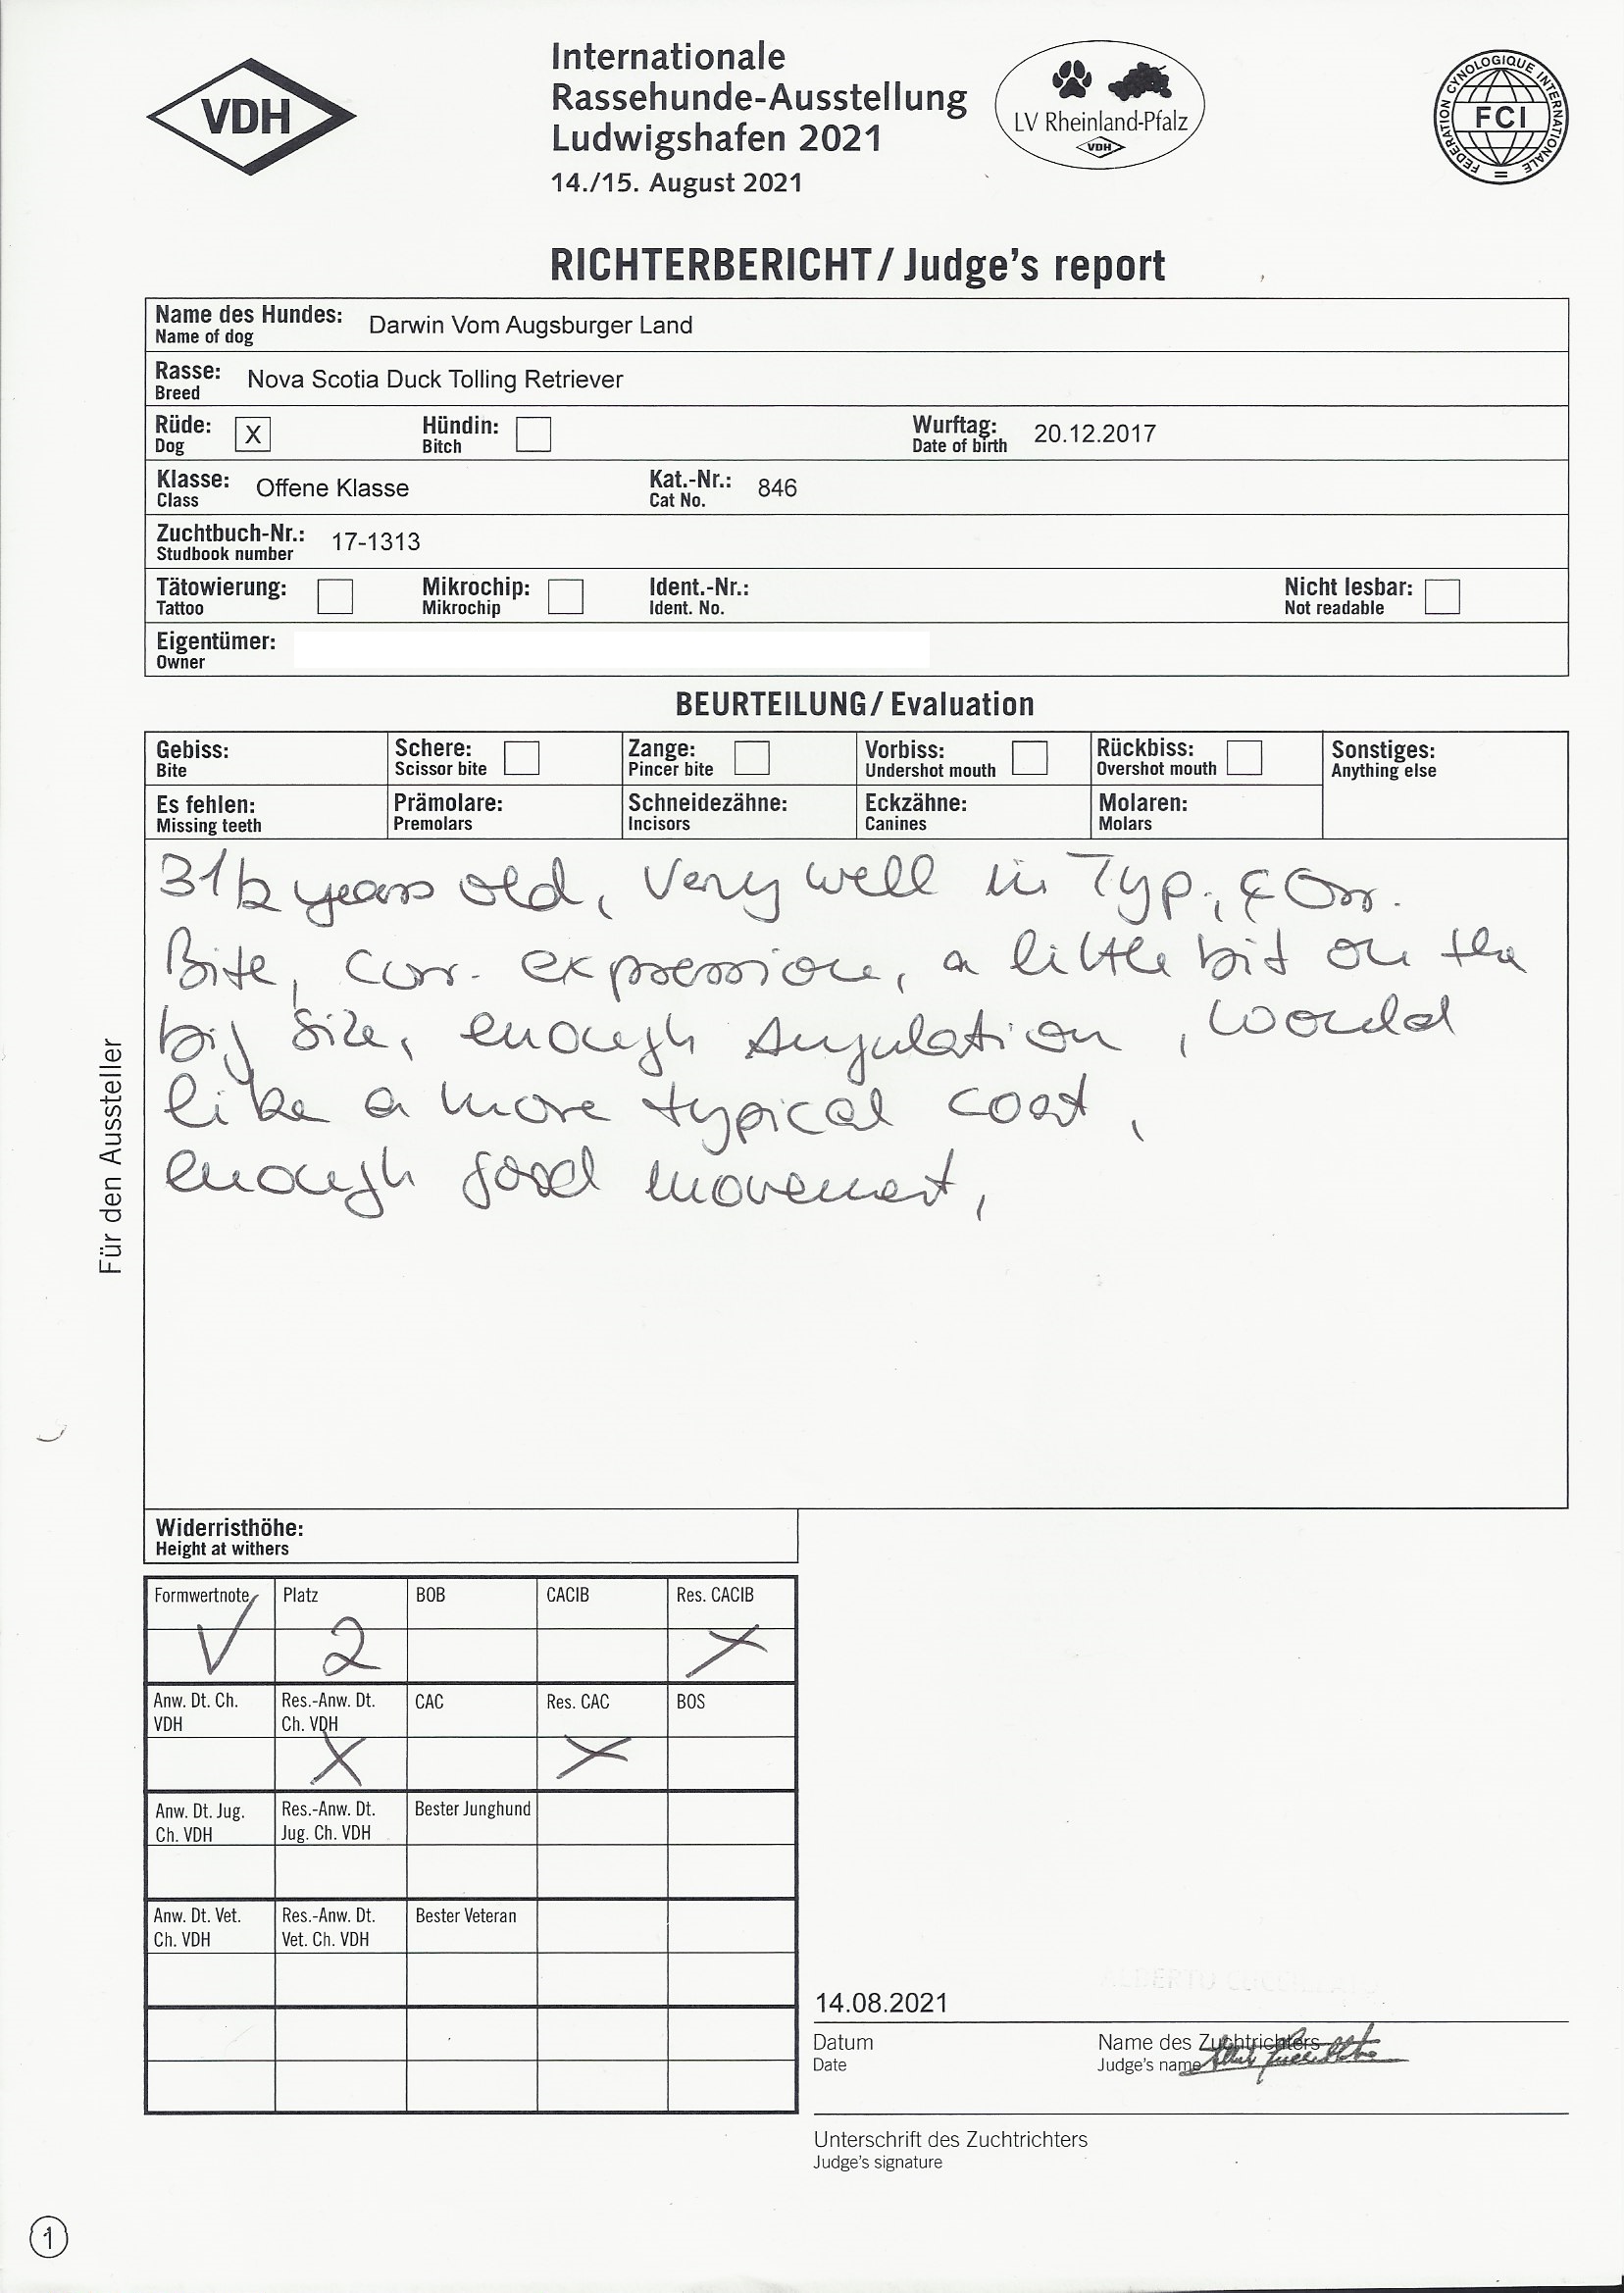 VDH
Internationale
Rassehunde-Ausstellung
Ludwigshafen 2021
14./15. August 2021
LV Rheinland-Pfalz
VDH
FEDERATION CYNOLOGIQUE INTERNATIONALE
FCI
RICHTERBERICHT / Judge's report
Name des Hundes: Darwin Vom Augsburger Land
Name of dog
Rasse: Nova Scotia Duck Tolling Retriever
Breed
Rüde: X Hündin: Wurftag: 20.12.2017
Dog Bitch Date of birth
Klasse: Offene Klasse Kat.-Nr.: 846
Class Cat No.
Zuchtbuch-Nr.: 17-1313
Studbook number
Tätowierung: Mikrochip: Ident.-Nr.: Nicht lesbar:
Tattoo Mikrochip Ident. No. Not readable
Eigentümer:
Owner
BEURTEILUNG / Evaluation
Gebiss: Schere: Zange: Vorbiss: Rückbiss: Sonstiges:
Bite Scissor bite Pincer bite Undershot mouth Overshot mouth Anything else
Es fehlen: Prämolare: Schneidezähne: Eckzähne: Molaren:
Missing teeth Premolars Incisors Canines Molars
3 1/2 years old, very well in Typ.,
Bite, corr. expression, a little bit on the
big size, enough Angulation, would
like a more typical coat,
enough good movement,
Für den Aussteller
Widerristhöhe:
Height at withers
Formwertnote Platz BOB CACIB Res. CACIB
V 2 X
Anw. Dt. Ch. Res.-Anw. Dt. CAC Res. CAC BOS
VDH Ch. VDH
X X
Anw. Dt. Jug. Res.-Anw. Dt. Bester Junghund
Ch. VDH Jug. Ch. VDH
Anw. Dt. Vet. Res.-Anw. Dt. Bester Veteran
Ch. VDH Vet. Ch. VDH
ALBERTO
14.08.2021
Datum Name des Zuchtrichters
Date Judge's name
Unterschrift des Zuchtrichters
Judge's signature
1